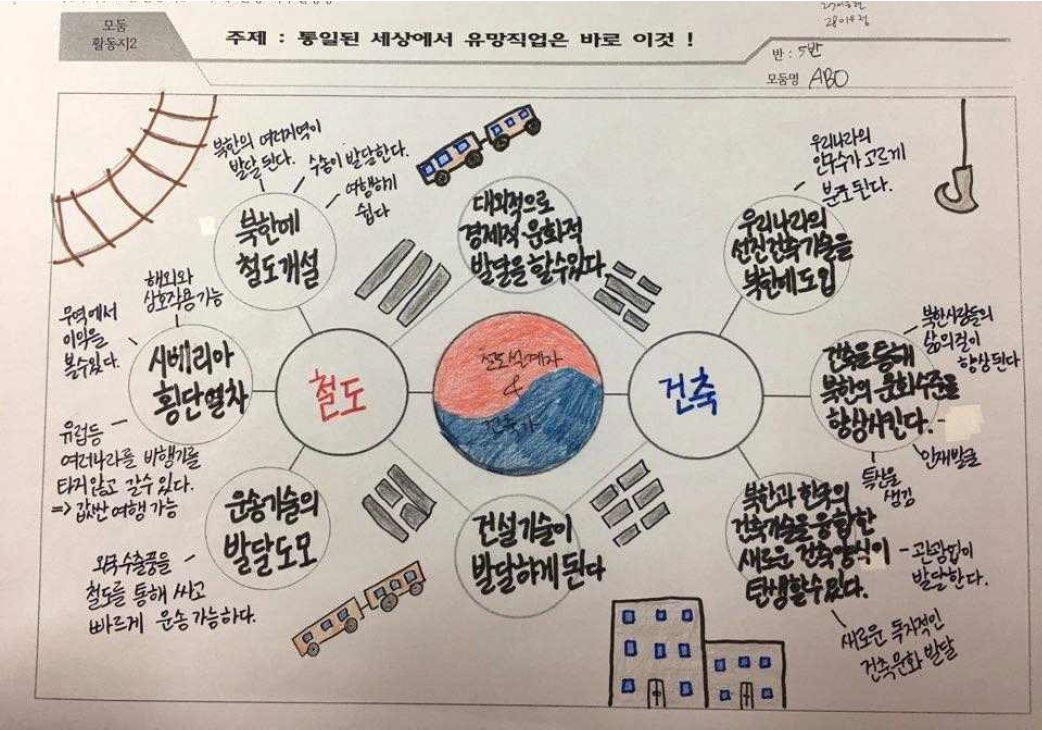 모둠
활동지2
주제 : 통일된 세상에서 유망직업은 바로 이것 !
반 : 5반
모둠명 ABO
북한의 여러지역이
발달 된다.
수송이 발달한다.
여행하기
쉽다
북한에
철도개설
대외적으로
경제적·문화적
발달을 할수있다.
우리나라의
인구수가 고르게
분포된다.
우리나라의
선진건축기술을
북한에 도입
해외와
상호작용 가능
무역에서
이익을
볼수있다.
시베리아
횡단열차
유럽등
여러나라를 비행기를
타지않고 갈수 있다.
=> 값싼 여행 가능
철도
철도설계자
&
건축가
건축
북한사람들의
삶의 질이
향상된다
건축을 통해
북한의 문화수준을
향상시킨다.
인재발굴
특산물
생김
운송기술의
발달도모
외국수출품을
철도를 통해 싸고
빠르게 운송 가능하다.
건설기술이
발달하게 된다
북한과 한국의
건축기술을 융합한
새로운 건축양식이
탄생할수있다.
관광업이
발달한다.
새로운 독자적인
건축문화 발달